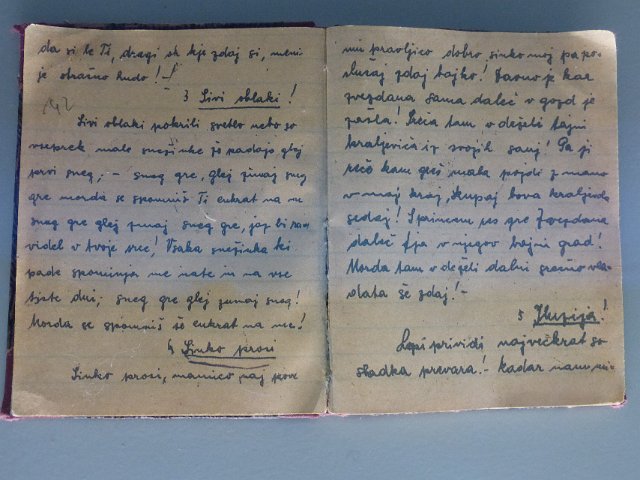 da si le Ti, dragi ok kje zdaj si, meni
je strašno hudo! -!
3 Sivi oblaki!
Sivi oblaki pokrili svetlo nebo so
vseprek male snežinke že padajo, glej
prvi sneg, - sneg gre, glej zunaj sneg
gre morda se spomniš Ti enkrat na me
sneg gre glej zunaj sneg gre, jaz bi rad
videl v tvoje srce! Vsaka snežinka ki
pade spominja me nate in na vse
tiste dni, sneg gre glej zunaj sneg!
Morda se spomniš še enkrat na me!
4 Sinko prosi
Sinko prosi, mamico, naj pove
mu pravljico dobro, sinko moj pa po-
slušaj zdaj tajko! Davno je kar
zvezdana sama daleč v gozd je
zašla! Sreča tam, v deželi tajni
kraljeviča iz svojih sanj! Pa ji
reče kam greš mala pojdi z mano
v moj kraj, skupaj bova kraljevala
sedaj! S princem res gre Zvezdana
daleč tja v njegov bajni grad!
Morda tam v deželi dalni srečno vla-
data še zdaj! -
5 Iluzija!
Lepi prividi največkrat so
sladka prevara! - kadar nam